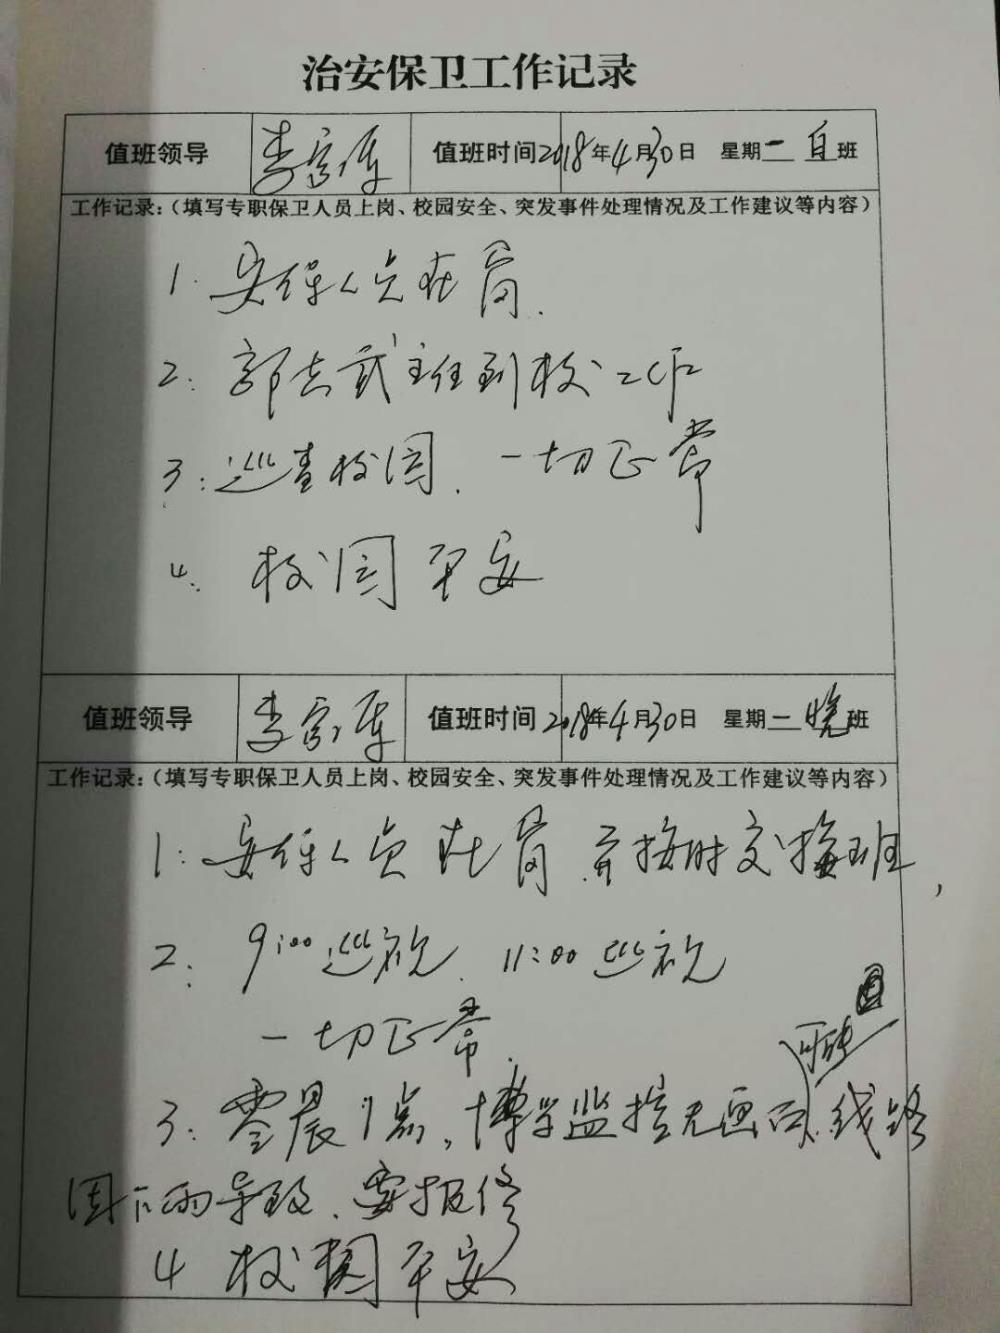 治安保卫工作记录
值班领导 李富连 值班时间 2018年4月30日 星期一 白班
工作记录：（填写专职保卫人员上岗、校园安全、突发事件处理情况及工作建议等内容）
1. 安保人员在岗.
2. 郭志武主任到校工作
3. 巡查校园. 一切正常
4. 校园平安
值班领导 李富连 值班时间 2018年4月30日 星期一 晚班
工作记录：（填写专职保卫人员上岗、校园安全、突发事件处理情况及工作建议等内容）
1. 安保人员在岗.并按时交接班,
2. 9:00巡视. 11:00巡视
一切正常.
可能
3. 零晨1点, 博学监控无画面.线路
因下雨导致.要报修
4 校园平安